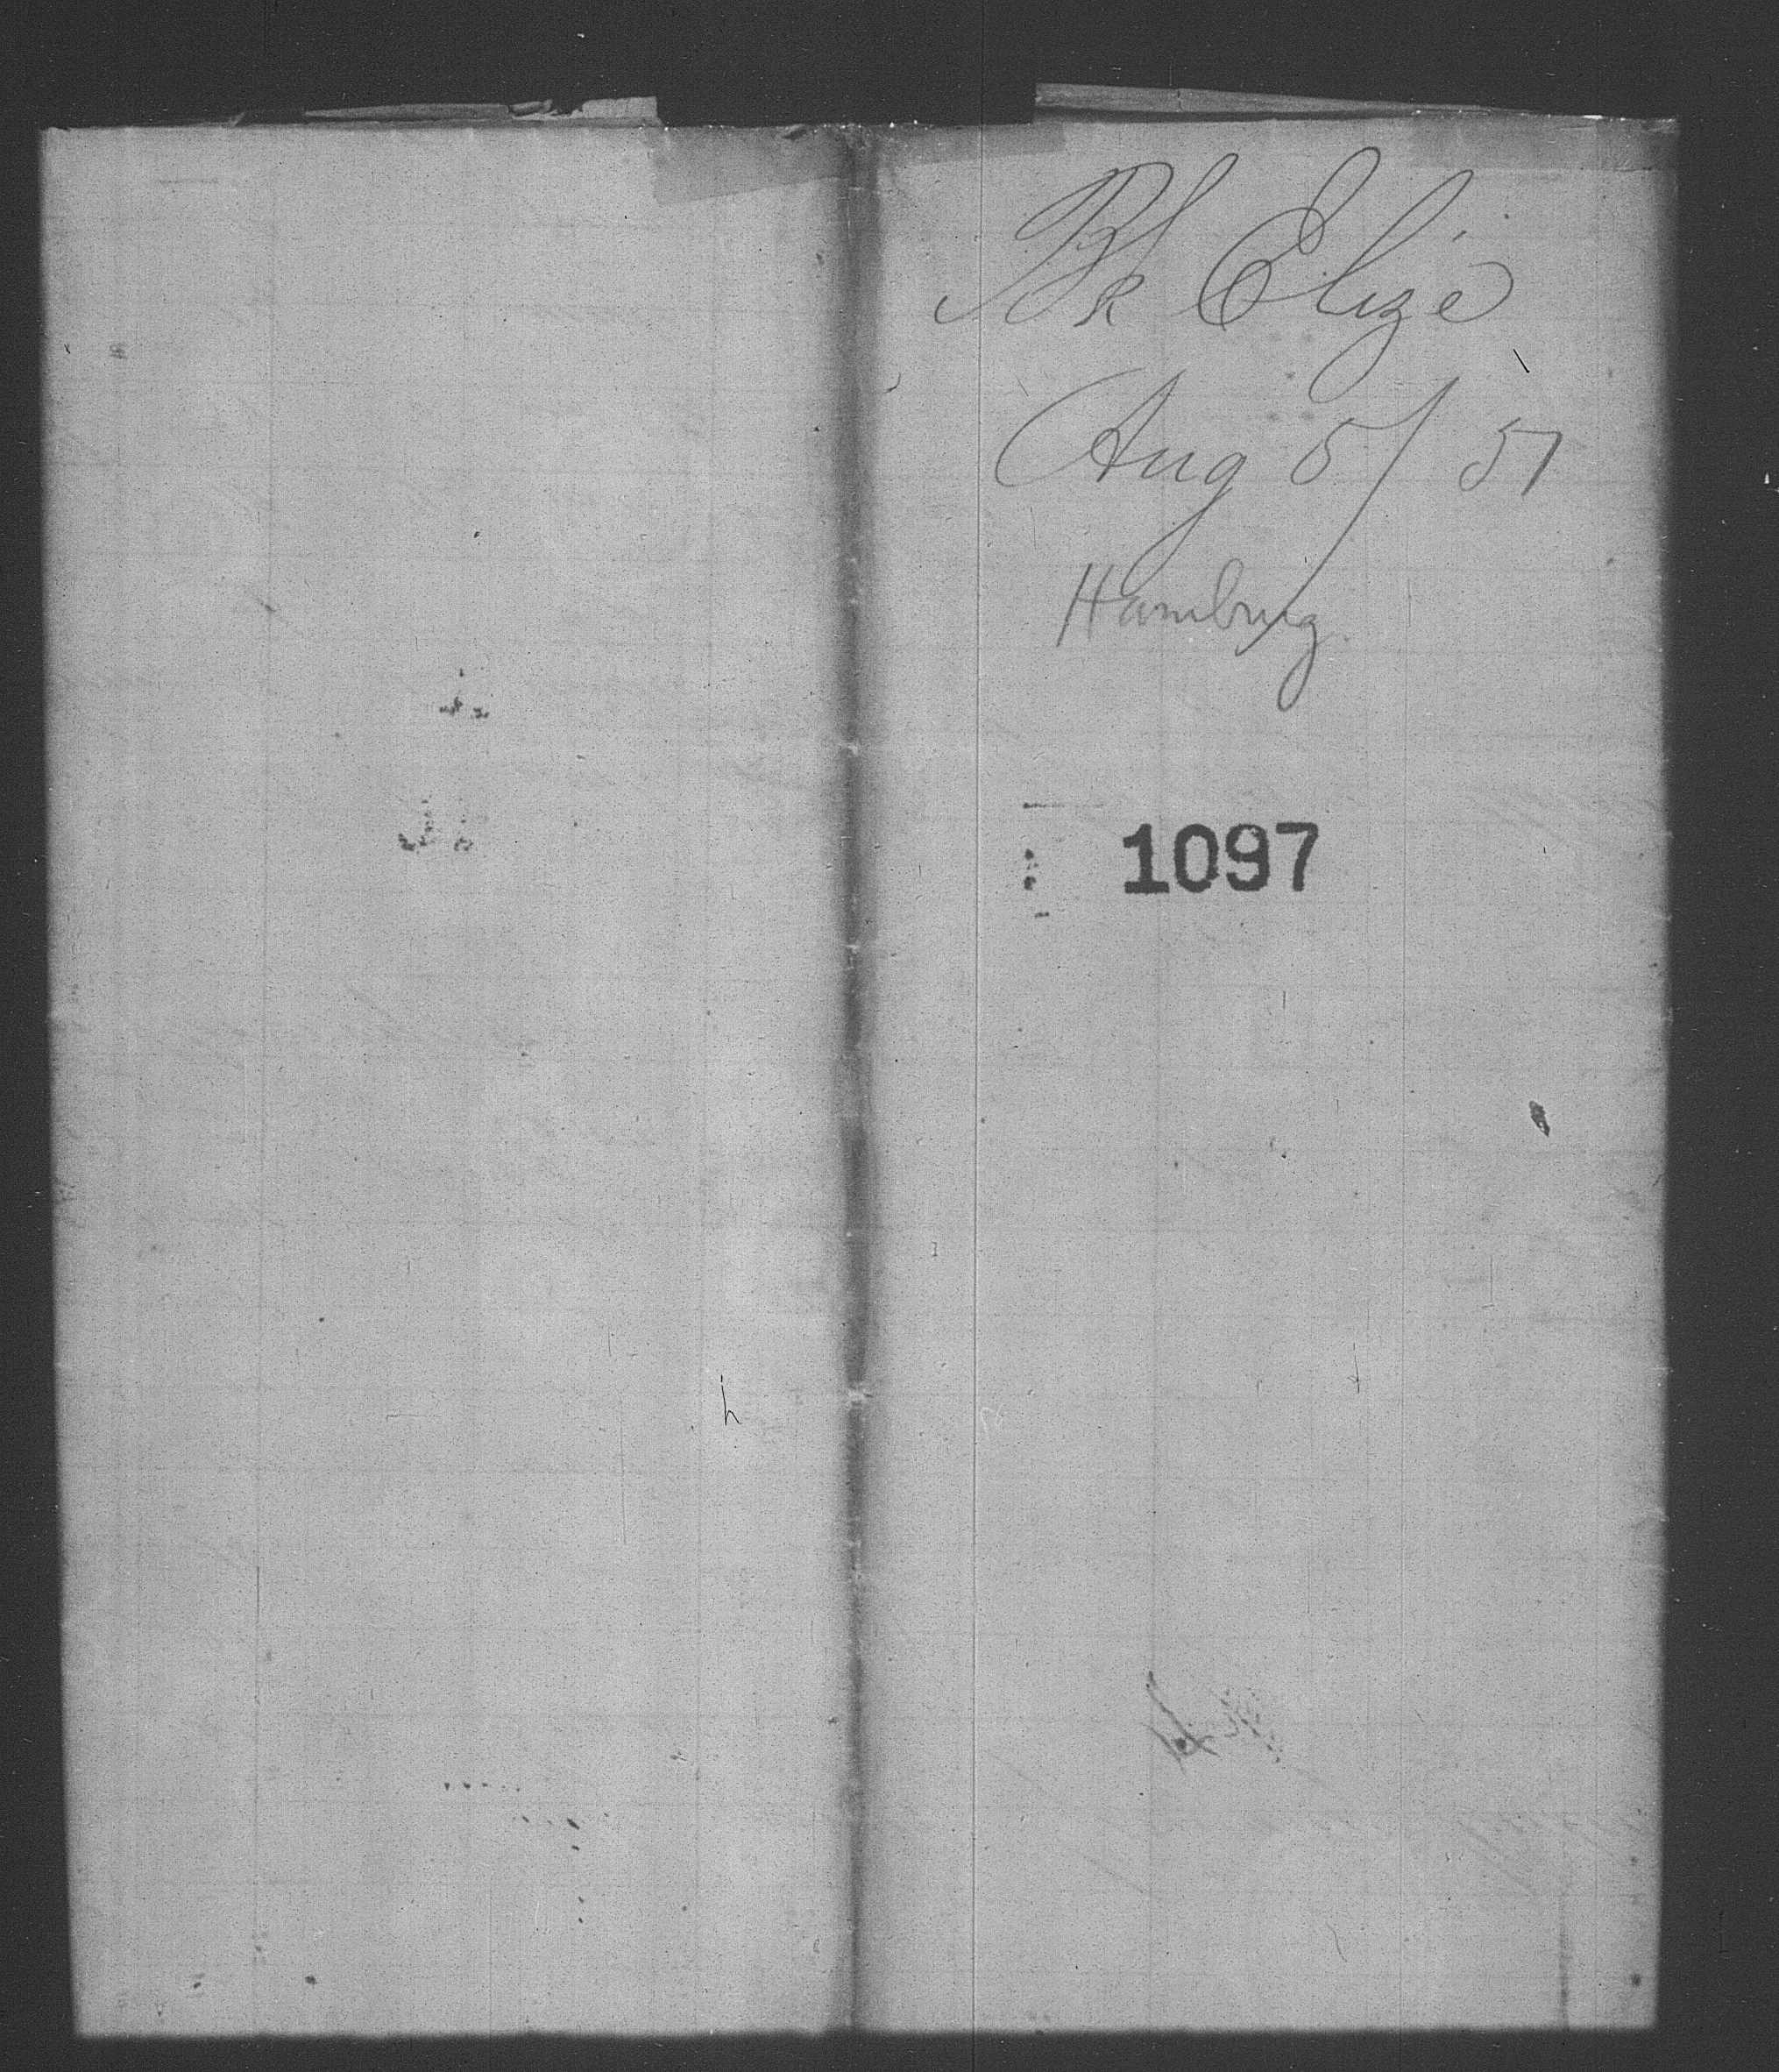 Bk Elize
Aug 5/ 57
Hamburg.
1097